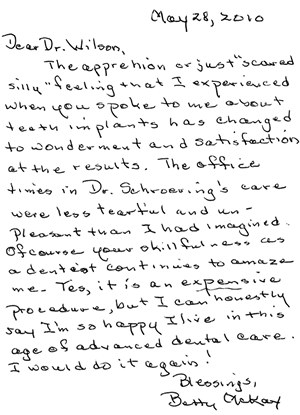 May 28, 2010
Dear Dr. Wilson,
The apprehion or just "scared
silly" feeling that I experienced
when you spoke to me about
teeth implants has changed
to wonderment and satisfaction
at the results. The office
times in Dr. Schroering's care
were less tearful and un-
pleasant than I had imagined.
Of course your skillfulness as
a dentist continues to amaze
me. Yes, it is an expensive
procedure, but I can honestly
say I'm so happy I live in this
age of advanced dental care.
I would do it again!
Blessings,
Betty McKay